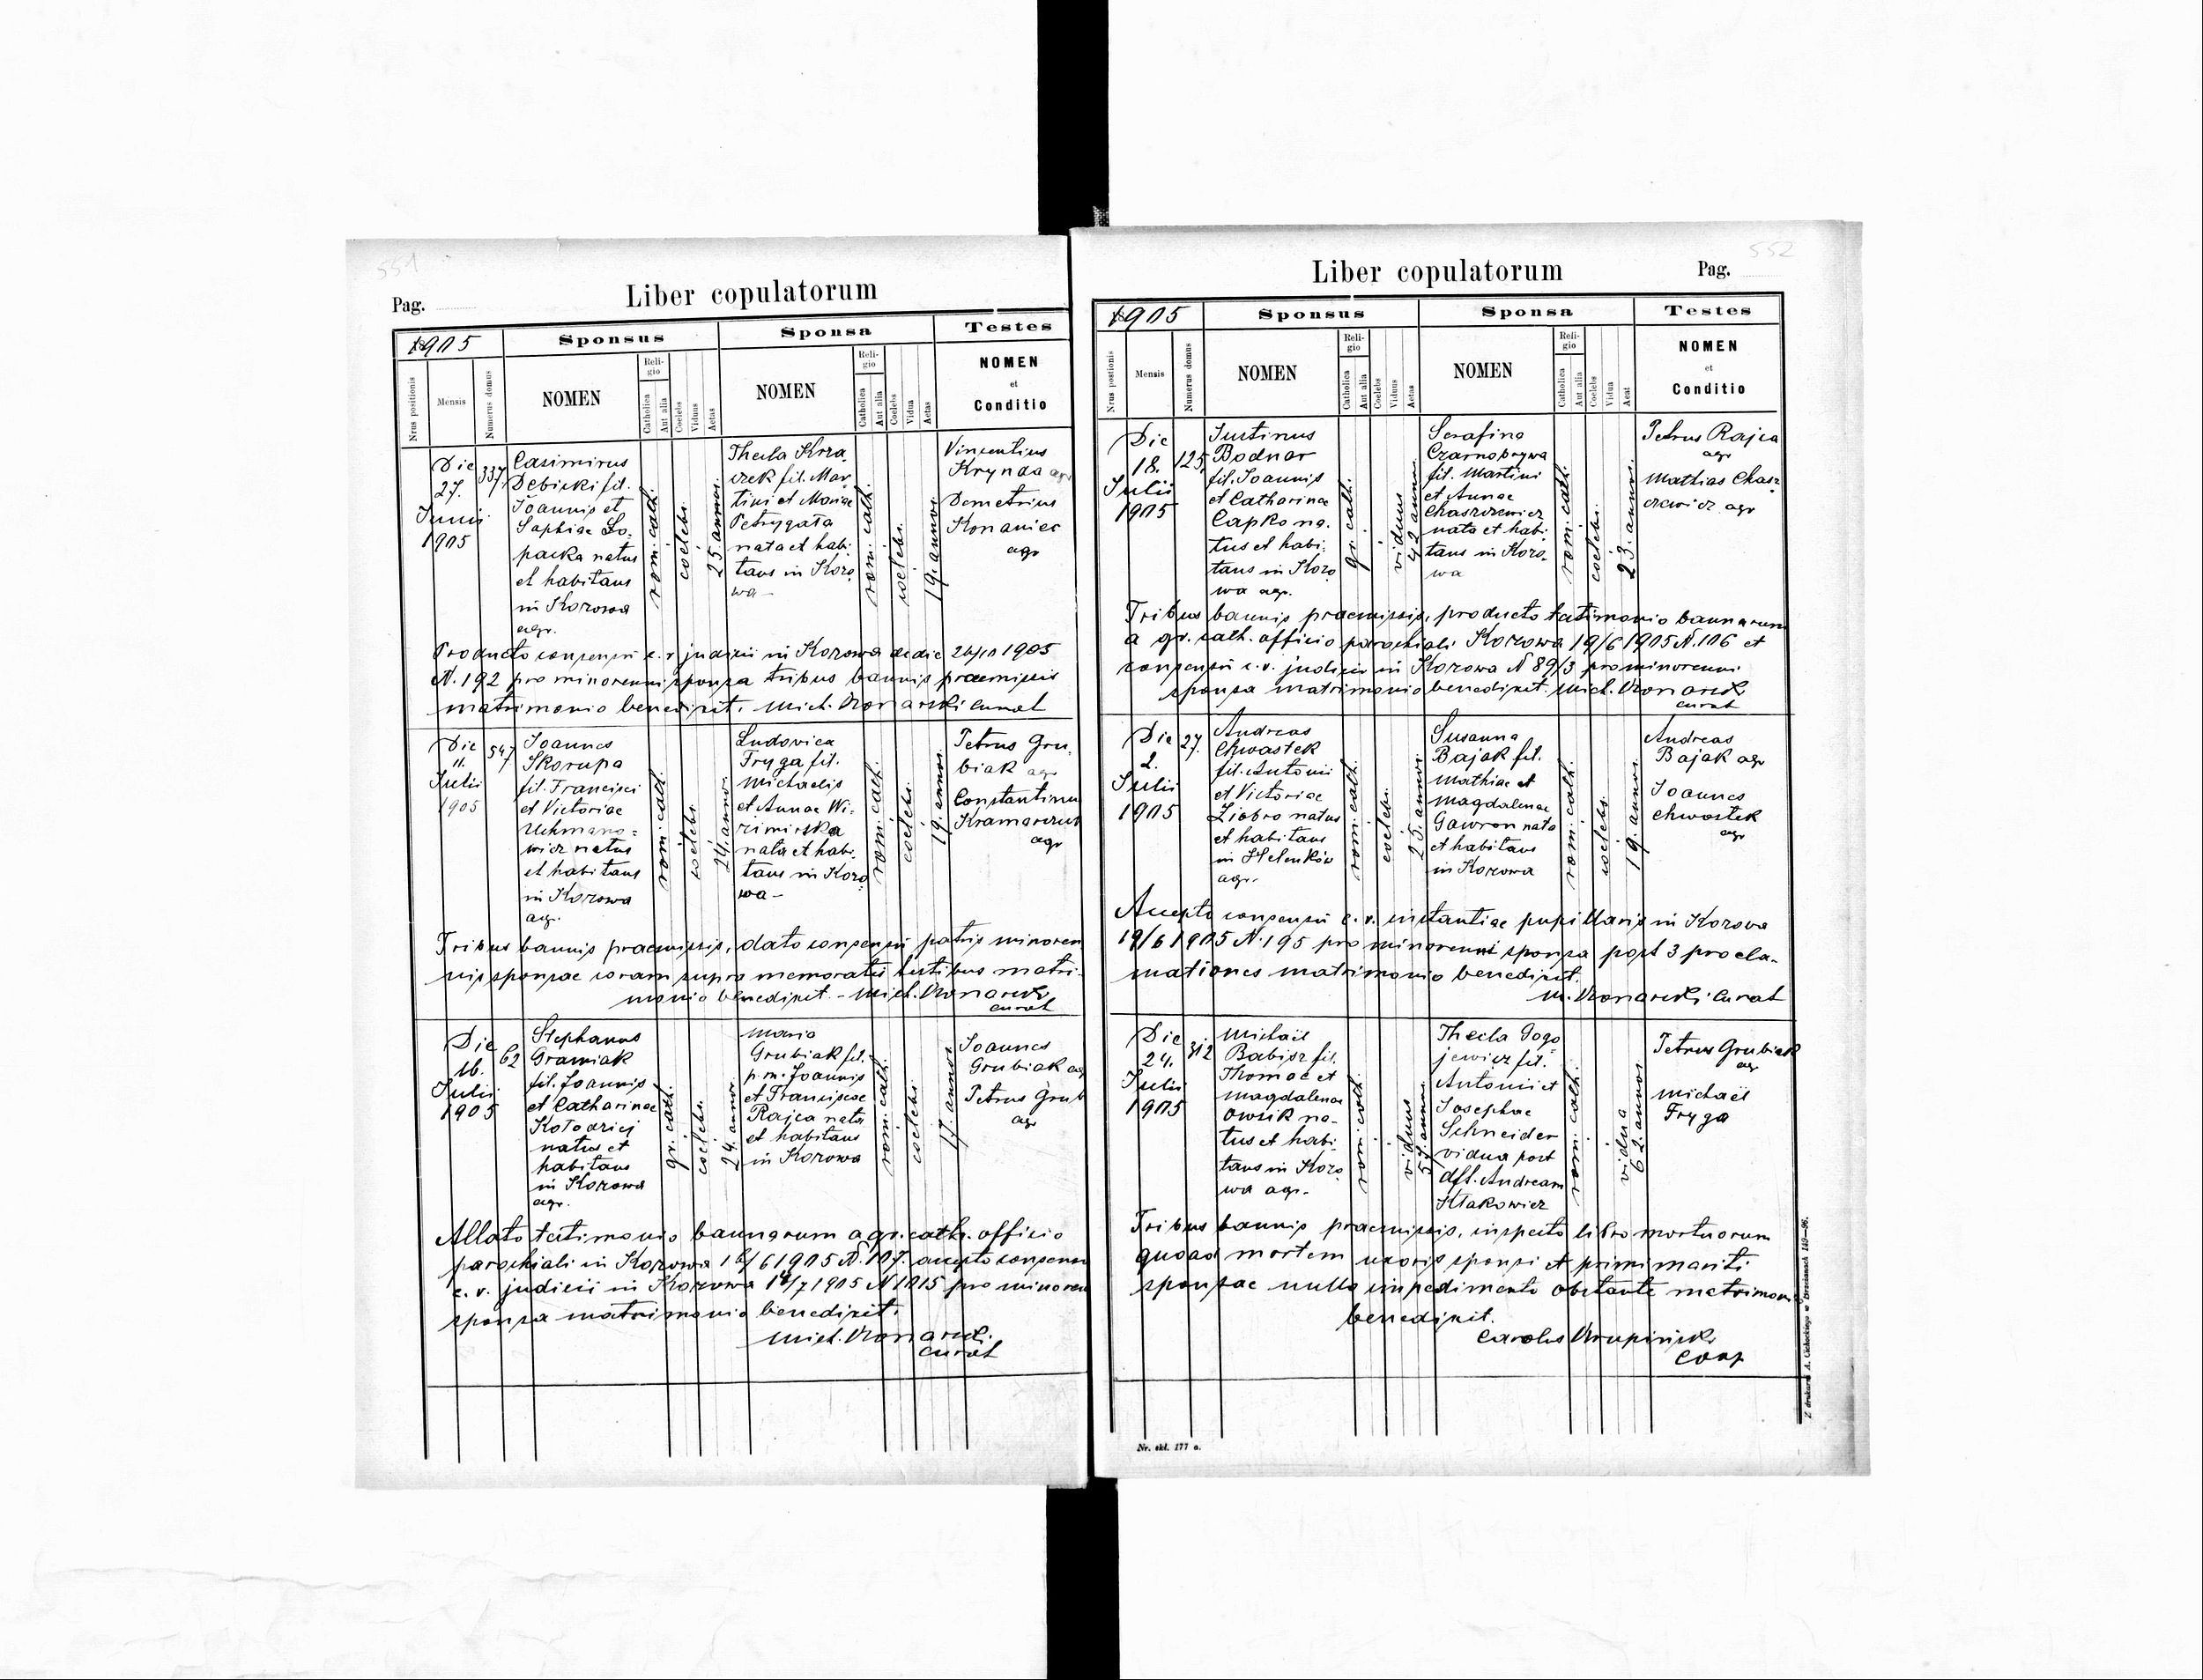 551
Pag.
Liber copulatorum
1905
Sponsus
Sponsa
Testes
Nrus positionis
Mensis
Numerus domus
NOMEN
Religio
Catholica
Aut alia
Coelebs
Viduus
Aetas
NOMEN
Religio
Catholica
Aut alia
Coelebs
Vidua
Aetas
NOMEN
et
Conditio
Die
27.
Junii
1905
337
Casimirus
Debicki fil.
Joannis et
Sophiae Lo-
packa natus
et habitans
in Kozowa
agr.
rom. cath.
coelebs.
25 annor.
Thecla Koza
czek fil. Mar
tini et Mariae
Petrygała
nata et habi-
tans in Kozo
wa —
rom. cath.
coelebs.
19. annor.
Vincentius
Krynda agr
Demetrius
Konaniec
agr
Producto consensu c. r judicii in Kozowa de die 26/10 1905
N. 192 pro minorenni sponsa tribus bannis praemissis
matrimonio benedixit. Mich. Konarski curat
Die
11.
Julii
1905
547
Joannes
Skorupa
fil. Francisci
et Victoriae
Uchmano-
wicz natus
et habitans
in Kozowa
agr.
rom. cath.
coelebs.
24. annor.
Ludovica
Fryga fil.
Michaelis
et Annae Wi-
zimirska
nata et habi-
tans in Kozo
wa —
rom. cath.
coelebs.
19. annor.
Petrus Gru-
biak agr
Constantinus
Kramarczuk
agr
Tribus bannis praemissis, dato consensu patris minoren
nis sponsae coram supra memoratis testibus matri-
monio benedixit. — Mich. Konarski
curat
Die
16.
Julii
1905
62
Stephanus
Gramiak
fil. Joannis
et Catharinae
Kołodziej
natus et
habitans
in Kozowa
agr.
gr. cath.
coelebs.
24. annor.
Maria
Grubiak fil.
p.m. Joannis
et Franciscae
Rajca nata
et habitans
in Kozowa
rom. cath.
coelebs.
17. annor.
Joannes
Grubiak agr
Petrus Grub
agr
Allato testimonio bannorum a gr. cath. officio
parochiali in Kozowa 16/6 1905 N. 107. accepto consensu
c. r. judicii in Kozowa 14/7 1905 N 1015 pro minoren
sponsa matrimonio benedixit.
Mich. Konarski.
curat
552
Liber copulatorum
Pag.
1905
Sponsus
Sponsa
Testes
Nrus positionis
Mensis
Numerus domus
NOMEN
Religio
Catholica
Aut alia
Coelebs
Viduus
Aetas
NOMEN
Religio
Catholica
Aut alia
Coelebs
Vidua
Aeat
NOMEN
et
Conditio
Die
18.
Julii
1905
125.
Justinus
Bodnar
fil. Joannis
et Catharinae
Capko na-
tus et habi-
tans in Kozo
wa agr.
gr. cath.
viduus
42 annor.
Serafina
Czarnobrywa
fil. Martini
et Annae
Chaszczewicz
nata et habi-
tans in Kozo-
wa
rom. cath.
coelebs.
23. annor.
Petrus Rajca
agr
Mathias Chasz
czewicz agr
Tribus bannis praemissis, producto testimonio bannorum
a gr. cath. officio parochiali Kozowa 19/6 1905 N. 106 et
consensu c. r. judicii in Kozowa N 89/3 pro minorenni
sponsa matrimonio benedixit. Mich. Konarski
curat
Die
2.
Julii
1905
27.
Andreas
Chwastek
fil. Antonii
et Victoriae
Ziobro natus
et habitans
in Helenków
agr.
rom. cath.
coelebs.
25. annor.
Susanna
Bajak fil.
Mathiae et
Magdalenae
Gawron nata
et habitans
in Kozowa
rom. cath.
coelebs.
19. annor.
Andreas
Bajak agr
Joannes
Chwostek
agr
Accepto consensu c. r. instantiae pupillaris in Kozowa
19/6 1905 N. 195 pro minorenni sponsa post 3 procla-
mationes matrimonio benedixit.
M. Konarski curat
Die
24.
Julii
1905
312
Michaël
Babisz fil.
Thomae et
Magdalenae
Owsik na-
tus et habi
tans in Kozo
wa agr.
rom. cath.
viduus
57. annor.
Thecla Gogo
jewicz fil.
Antonii et
Josephae
Schneider
vidua post
dft. Andream
Htakowicz
rom. cath.
vidua
62. annor.
Petrus Grubiak
agr
Michaël
Fryga
Tribus bannis praemissis, inspecto libro mortuorum
quoad mortem uxoris sponsi et primi mariti
sponsae nullo impedimento obstante matrimon
benedixit.
Carolus Krupiński
coop
Nr. skł. 177 a.
Z drukarni A. Cichockiego w Brzeżanach 149—96.